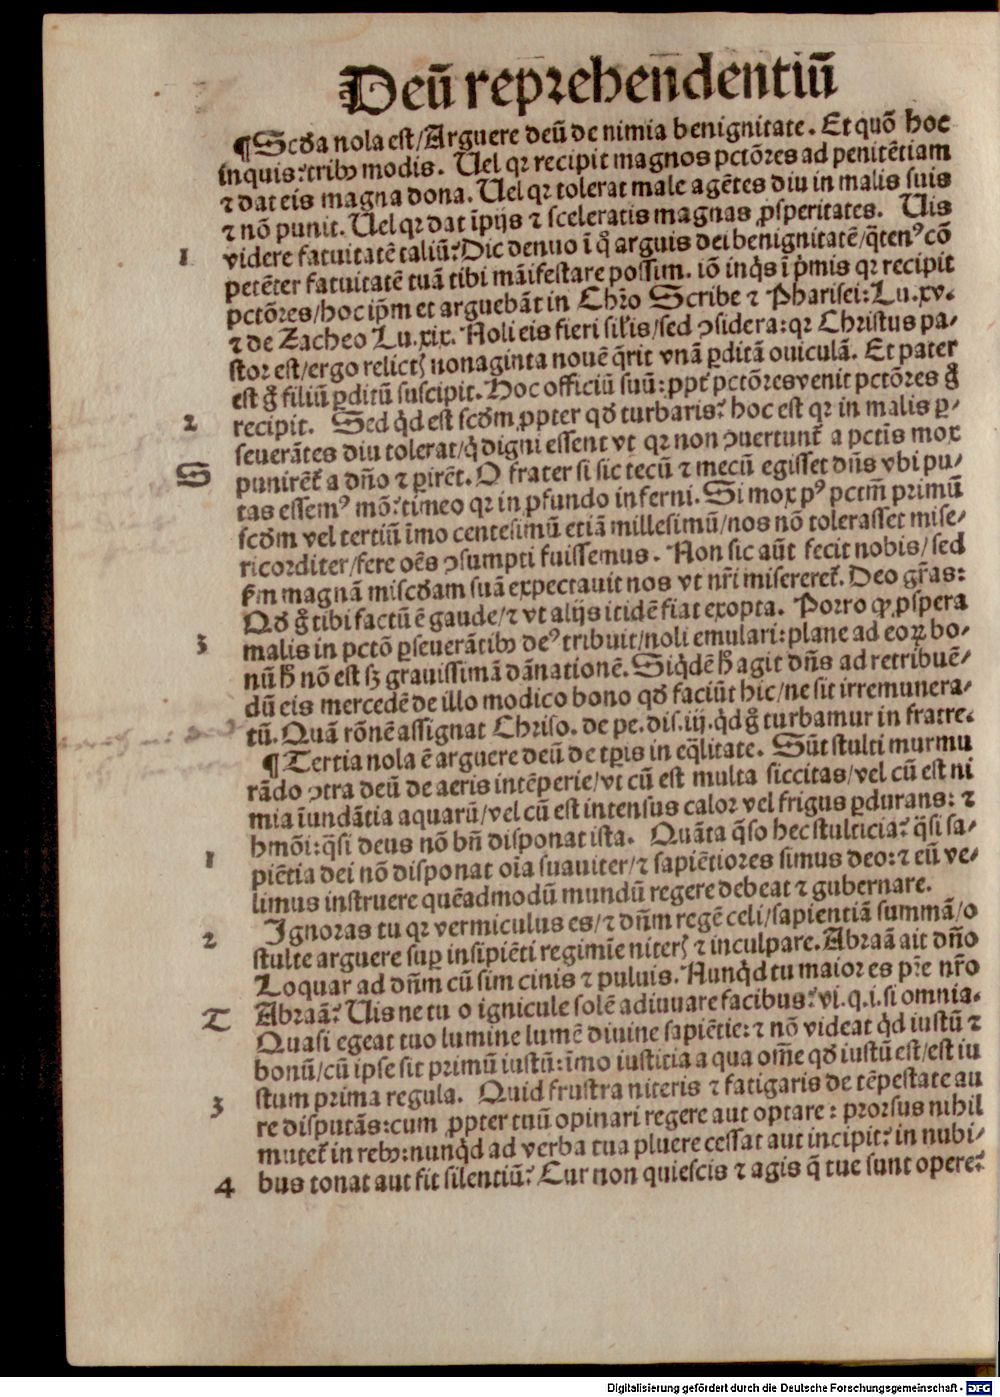 Deū reprehendentiū
¶Scďa nola est/Arguere deū de nimia benignitate. Et quō hoc
inquis: tribꝰ modis. Uel qꝛ recipit magnos pctōres ad penitētiam
⁊ dat eis magna dona. Uel qꝛ tolerat male agētes diu in malis suis
⁊ nō punit. Uel qꝛ dat īpijs ⁊ sceleratis magnas ꝓsperitates. Uis
1 videre fatuitatē taliū? Dic denuo ī q̊ arguis dei benignitatē/q̄tenꝰ cō
petēter fatuitatē tuā tibi māifestare possim. iō inq̇s ī p̄mis qꝛ recipit
pctōres/hoc ip̄m et arguebāt in Chr̄o Scribe ⁊ Pharisei: Lu.xv.
⁊ de Zacheo Lu.xix. Noli eis fieri sil̄is/sed ↄsidera: qꝛ Christus pa/
stor est/ergo relictꝫ nonaginta nouē q̄rit vnā ꝑditā ouiculā. Et pater
est g̊ filiū ꝑditū suscipit. Hoc officiū suū: ꝓpt̄ pctōres venit pctōres g̊
2 recipit. Sed q̇d est scďm ꝓpter qď turbaris? hoc est qꝛ in malis ꝑ/
seuerātes diu tolerat/q̇ digni essent vt qꝛ non ↄuertunt̄ a pctīs mox
S punirēt̄ a dn̄o ⁊ ꝑirēt. O frater si sic tecū ⁊ mecū egisset dn̄s vbi pu/
tas essemꝰ mō? timeo qꝛ in ꝓfundo inferni. Si mox pꝰ pctm̄ primū
scďm vel tertiū īmo centesimū etiā millesimū/nos nō tolerasset mise/
ricorditer/fere oēs ↄsumpti fuissemus. Non sic aūt fecit nobis/sed
ẜm magnā miscďam suā expectauit nos vt nr̄i misereret̄. Deo gr̄as:
Qď g̊ tibi factū ē gaude/⁊ vt alijs itidē fiat exopta. Porro ꝙ ꝓspera
3 malis in pctō ꝑseuerātibꝰ deꝰ tribuit/noli emulari: plane ad eoꝝ bo/
nū h̄ nō est sꝫ grauissimā dānationē. Siq̇dē h̄ agit dn̄s ad retribuē/
dū eis mercedē de illo modico bono qď faciūt hic/ne sit irremunera/
tū. Quā rōnē assignat Chriso. de pe. dis.iij. q̇d g̊ turbamur in fratre.
¶Tertia nola ē arguere deū de tꝑis in eq̄litate. Sūt stulti murmu
rādo ↄtra deū de aeris intēperie/vt cū est multa siccitas/vel cū est ni
mia īundātia aquarū/vel cū est intensus calor vel frigus ꝑdurans: ⁊
hmōi: q̄si deus nō bn̄ disponat ista. Quāta q̄so hec stulticia? q̄si sa/
1 piētia dei nō disponat oīa suauiter/⁊ sapiētiores simus deo: ⁊ eū ve/
limus instruere quēadmodū mundū regere debeat ⁊ gubernare.
Ignoras tu qꝛ vermiculus es/⁊ dn̄m regē celi/sapientiā summā/o
2 stulte arguere suꝑ insipiēti regimīe niterꝫ ⁊ inculpare. Abraā ait dn̄o
Loquar ad dn̄m cū sim cinis ⁊ puluis. Nunq̇d tu maior es pr̄e nr̄o
T Abraā? Uis ne tu o ignicule solē adiuuare facibus? vi.q.i.si omnia.
Quasi egeat tuo lumine lumē diuine sapiētie: ⁊ nō videat q̇d iustū ⁊
bonū/cū ipse sit primū iustū: īmo iusticia a qua om̄e qď iustū est/est iu
stum prima regula. Quid frustra niteris ⁊ fatigaris de tēpestate au
3 re disputās: cum ꝓpter tuū opinari regere aut optare: prorsus nihil
mutet̄ in rebꝰ: nunq̇d ad verba tua pluere cessat aut incipit? in nubi/
4 bus tonat aut fit silentiū? Cur non quiescis ⁊ agis q̄ tue sunt opere?
Digitalisierung gefördert durch die Deutsche Forschungsgemeinschaft - DFG